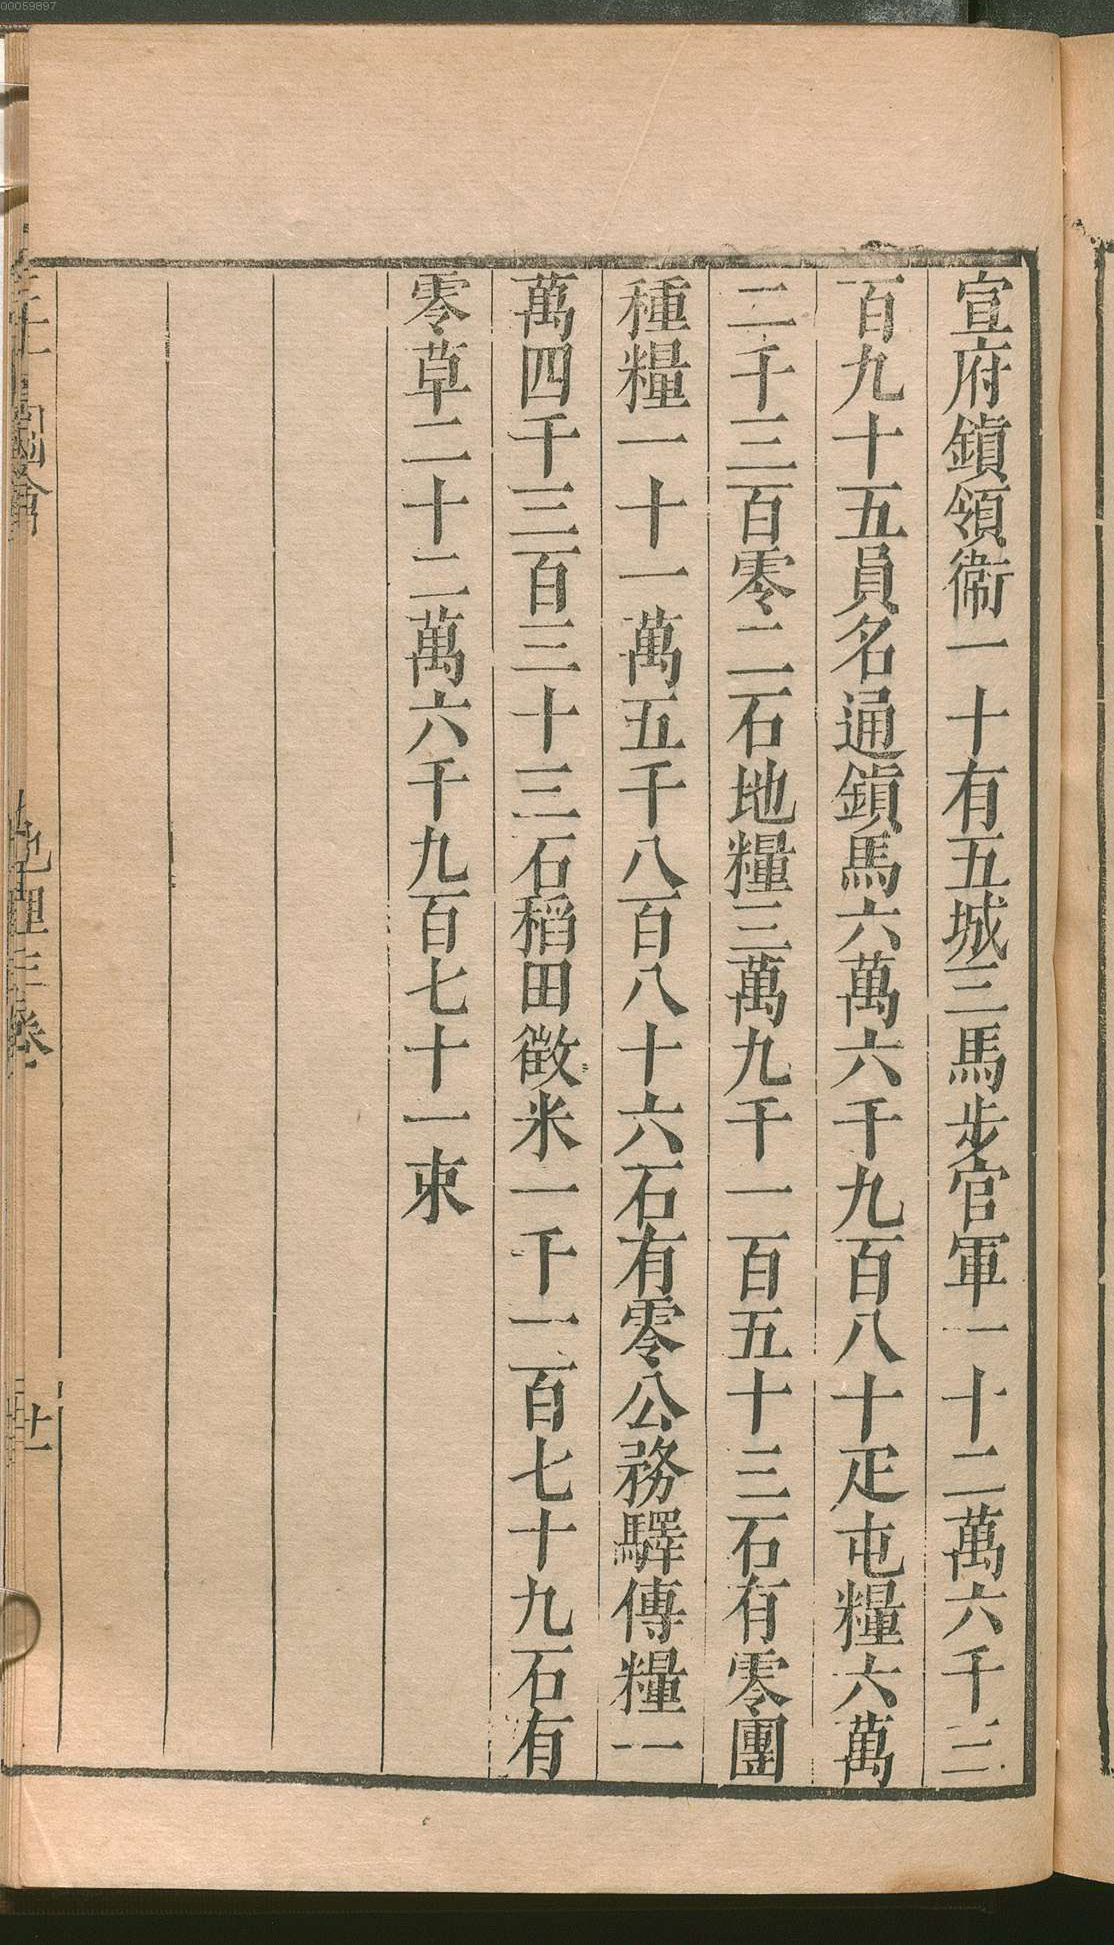 宣府鎮領衞一十有五城三馬步官軍一十二萬六千三
百九十五員名通鎮馬六萬六千九百八十疋屯糧六萬
二千三百零二石地糧三萬九千一百五十三石有零團
種糧一十一萬五千八百八十六石有零公務驛傳糧一
萬四千三百三十三石稻田徵米一千一百七十九石有
零草二十二萬六千九百七十一束
三才圖會
地理三卷
廿一
00059897